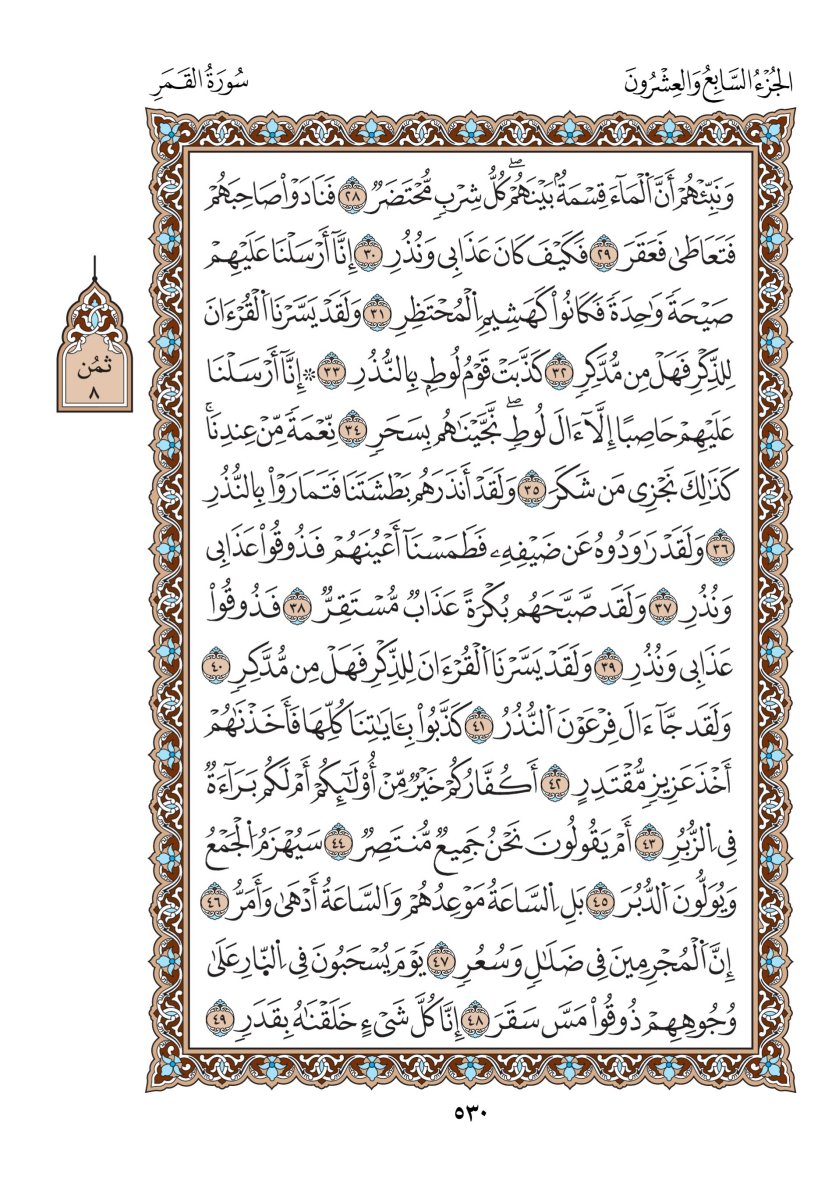 الجُزْءُ السَّابِعُ وَالعِشْرُونَ
سُورَةُ القَمَرِ
وَنَبِّئْهُمُۥٓ أَنَّ اَ۬لْمَآءَ قِسْمَةُۢ بَيْنَهُمْۖ كُلُّ شِرْبٖ مُّحْتَضَرٞ ٢٨ فَنَادَوْاْ صَاحِبَهُمْ
فَتَعَاطَىٰ فَعَقَرَ ٢٩ فَكَيْفَ كَانَ عَذَابِي وَنُذُرِ ٣٠ إِنَّآ أَرْسَلْنَا عَلَيْهِمْ
صَيْحَةٗ وَٰحِدَةٗ فَكَانُواْ كَهَشِيمِ اِ۬لْمُحْتَظِرِ ٣١ وَلَقَدْ يَسَّرْنَا اَ۬لْقُرْءَانَ
لِلذِّكْرِ فَهَلْ مِن مُّدَّكِرٖ ٣٢ كَذَّبَتْ قَوْمُ لُوطِۢ بِالنُّذُرِ ٣٣ ۞ إِنَّآ أَرْسَلْنَا
عَلَيْهِمْ حَاصِبًا إِلَّآ ءَالَ لُوطٖۖ نَّجَّيْنَٰهُم بِسَحَرٖ ٣٤ نِّعْمَةٗ مِّنْ عِندِنَاۚ
كَذَٰلِكَ نَجْزِي مَن شَكَرَ ٣٥ وَلَقَدْ أَنذَرَهُم بَطْشَتَنَا فَتَمَارَوْاْ بِالنُّذُرِ
٣٦ وَلَقَدْ رَٰوَدُوهُ عَن ضَيْفِهِۦ فَطَمَسْنَآ أَعْيُنَهُمْ فَذُوقُواْ عَذَابِي
وَنُذُرِ ٣٧ وَلَقَد صَّبَّحَهُم بُكْرَةً عَذَابٞ مُّسْتَقِرّٞ ٣٨ فَذُوقُواْ
عَذَابِي وَنُذُرِ ٣٩ وَلَقَدْ يَسَّرْنَا اَ۬لْقُرْءَانَ لِلذِّكْرِ فَهَلْ مِن مُّدَّكِرٖ ٤٠
وَلَقَد جَّآءَالَ فِرْعَوْنَ اَ۬لنُّذُرُ ٤١ كَذَّبُواْ بِـَٔايَٰتِنَا كُلِّهَا فَأَخَذْنَٰهُمْ
أَخْذَ عَزِيزٖ مُّقْتَدِرٍ ٤٢ أَكُفَّارُكُمْ خَيْرٞ مِّنْ أُوْلَٰٓئِكُمْ أَمْ لَكُم بَرَآءَةٞ
فِي اِ۬لزُّبُرِ ٤٣ أَمْ يَقُولُونَ نَحْنُ جَمِيعٞ مُّنتَصِرٞ ٤٤ سَيُهْزَمُ اُ۬لْجَمْعُ
وَيُوَلُّونَ اَ۬لدُّبُرَ ٤٥ بَلِ اِ۬لسَّاعَةُ مَوْعِدُهُمْ وَالسَّاعَةُ أَدْهَىٰ وَأَمَرُّ ٤٦
إِنَّ اَ۬لْمُجْرِمِينَ فِي ضَلَٰلٖ وَسُعُرٖ ٤٧ يَوْمَ يُسْحَبُونَ فِي اِ۬لنّ۪ارِ عَلَىٰ
وُجُوهِهِمْ ذُوقُواْ مَسَّ سَقَرَ ٤٨ إِنَّا كُلَّ شَيْءٍ خَلَقْنَٰهُ بِقَدَرٖ ٤٩
ثمُن
٨
٥٣٠